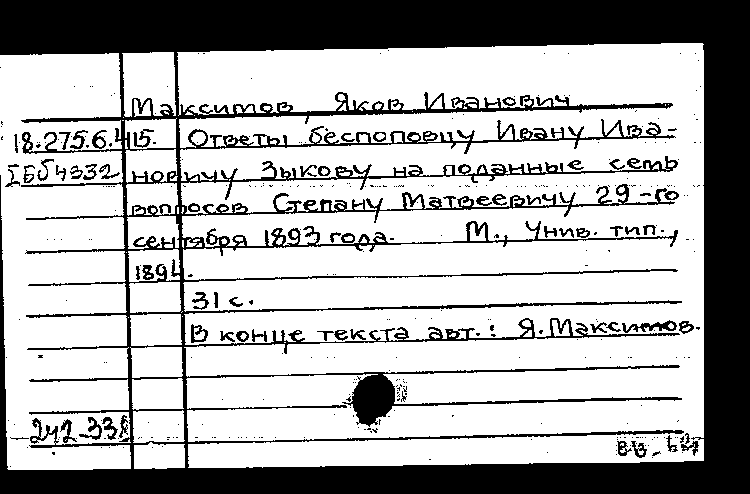 Максимов, Яков Иванович
18.275.6.415. Ответы беспоповцу Ивану Ива-
новичу Зыкову на поданные семь
вопросов Степану Матвеевичу 29-го
сентября 1893 года. М., Унив. тип.,
1894.
31 с.
В конце текста авт.: Я. Максимов.
242-338